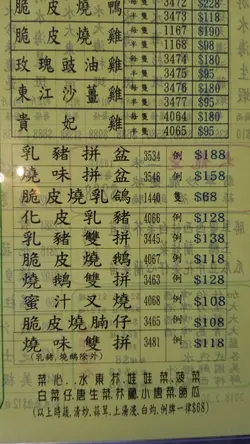 脆皮燒鴨 每隻 3472 $228
半隻 3473 $118
脆皮燒雞 每隻 1167 $190
半隻 1168 $98
玫瑰豉油雞 每隻 3474 $180
半隻 3475 $95
東江沙薑雞 每隻 3476 $180
半隻 3477 $95
貴妃雞 每隻 4064 $180
半隻 4065 $95
乳豬拼盆 3534 例 $188
燒味拼盆 3546 例 $158
脆皮燒乳鴿 1440 隻 $68
化皮乳豬 4066 例 $128
乳豬雙拼 3445 例 $138
脆皮燒鵝 4067 例 $118
燒鵝雙拼 3463 例 $128
蜜汁叉燒 4068 例 $108
脆皮燒腩仔 3465 例 $108
燒味雙拼 3481 例 $118
(乳豬,燒鵝除外)
菜心、水東芥、娃娃菜、菠菜
白菜仔、唐生菜、芥蘭、小唐菜、勝瓜
(以上時蔬,清炒,蒜茸,上湯浸,白灼,例牌一律$68)